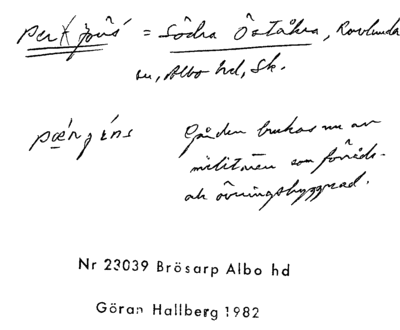 Per Jöns = Södra Öståkra, Ravlunda
sn, Albo hd, Sk.
pæ̀nʒǿns Gården brukas nu av
militären som förråds-
och övningsbyggnad.
Nr 23039 Brösarp Albo hd
Göran Hallberg 1982